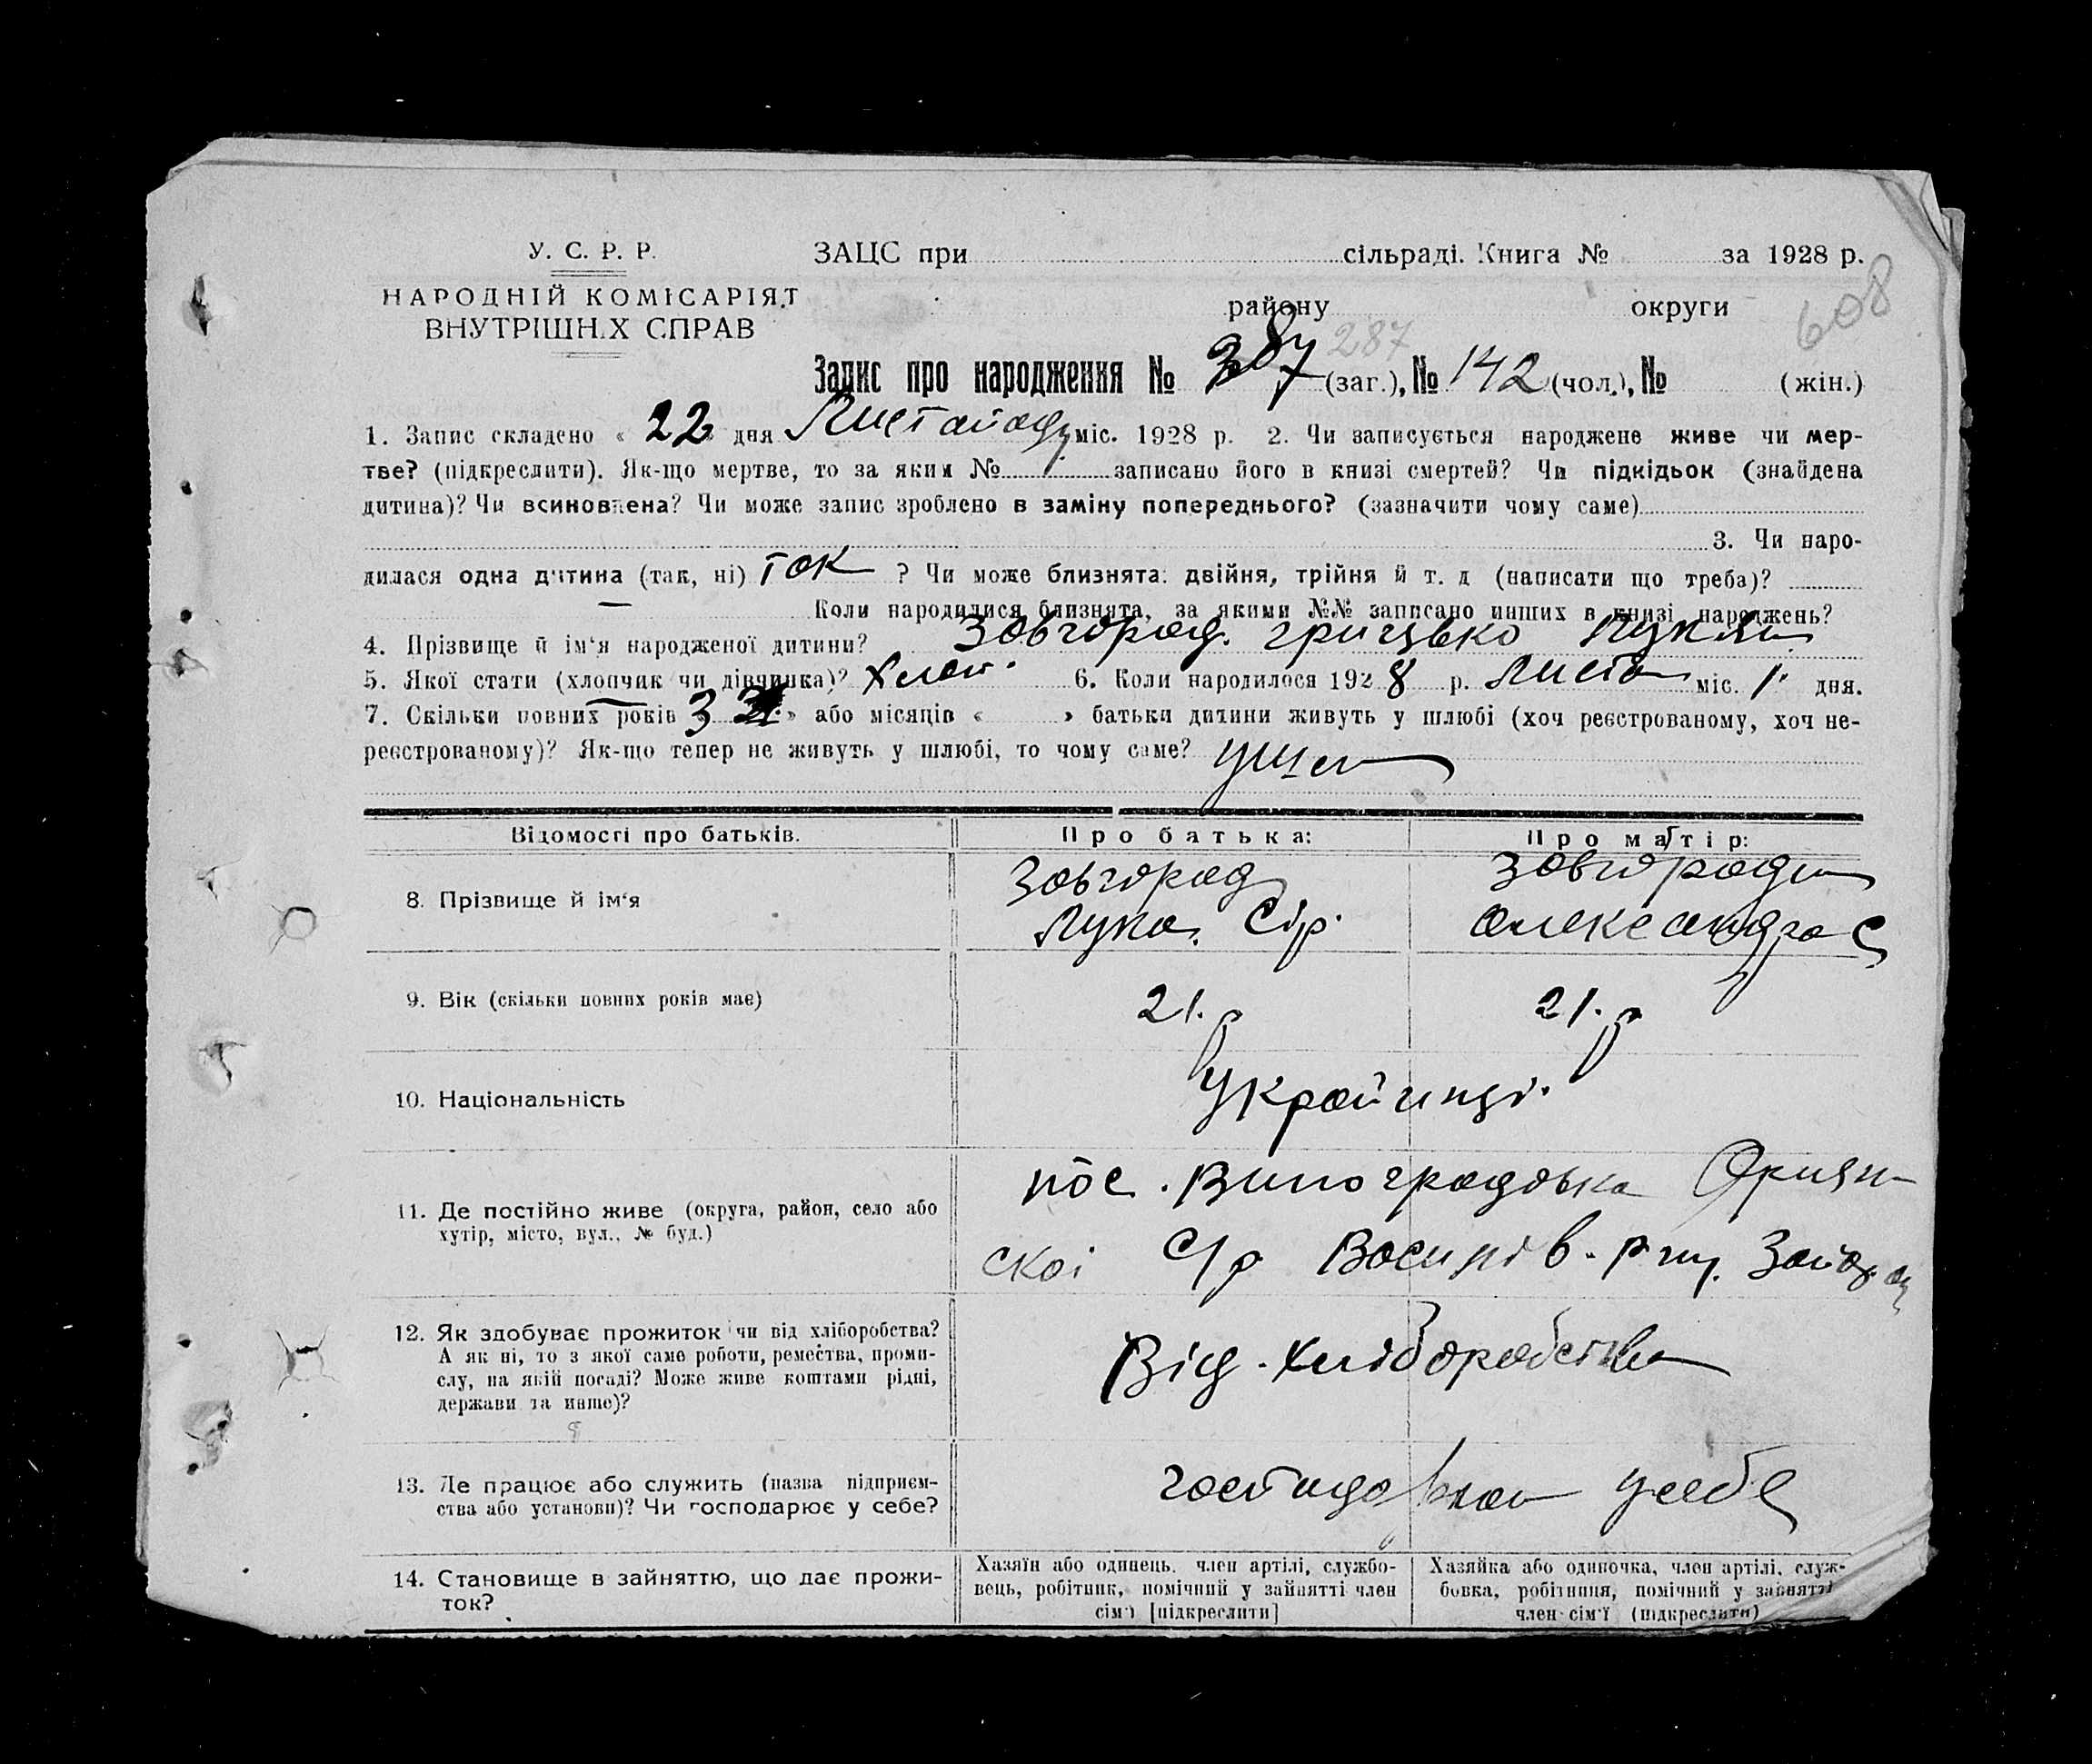 У. С. Р. Р.
НАРОДНІЙ КОМІСАРІЯТ
ВНУТРІШН.Х СПРАВ
ЗАЦС при сільраді. Книга № за 1928 р.
району округи
608
287
Запис про народження № 287 (заг.), № 142 (чол.), № (жін.)
1. Запис складено « 22 » дня Листопаду міс. 1928 р. 2. Чи записується народжене живе чи мер-
тве? (підкреслити). Як-що мертве, то за яким № записано його в книзі смертей? Чи підкідьок (знайдена
дитина)? Чи всиновлена? Чи може запис зроблено в заміну попереднього? (зазначити чому саме)
3. Чи наро-
дилася одна дитина (так, ні) так ? Чи може близнята: двійня, трійня й т. д (написати що треба)?
Коли народилися близнята, за якими №№ записано инших в книзі народжень?
4. Прізвище й ім'я народженої дитини? Завгород. Грицько
5. Якої стати (хлопчик чи дівчинка)? Хлоп. 6. Коли народилося 1928 р. Листоп міс. 1. дня.
7. Скільки повних років 3 » або місяців « » батьки дитини живуть у шлюбі (хоч реєстрованому, хоч не-
реєстрованому)? Як-що тепер не живуть у шлюбі, то чому саме?
Відомості про батьків. Про батька: Про матір:
8. Прізвище й ім'я
Завгород
Лука. Сір.
Завгородн
Олександра С
9. Вік (скільки повних років має) 21. р 21. р
10. Національність Україинці.
11. Де постійно живе (округа, район, село або
хутір, місто, вул., № буд.)
пос. Виноградовка
скоі С/р Василів. р-ну. Запор.
12. Як здобуває прожиток чи від хліборобства?
А як ні, то з якої саме роботи, ремества, проми-
слу, на якій посаді? Може живе коштами рідні,
держави та инше)?
Від. хліборобства
13. Де працює або служить (назва підприєм-
ства або установи)? Чи господарює у себе?
у себе
14. Становище в зайняттю, що дає прожи-
ток?
Хазяїн або одинець. член артілі, службо-
вець, робітник, помічний у зайнятті член
сім'ї [підкреслити]
Хазяйка або одиночка, член артілі, служ-
бовка, робітниця, помічний у зайнятті
член сім'ї (підкреслити)